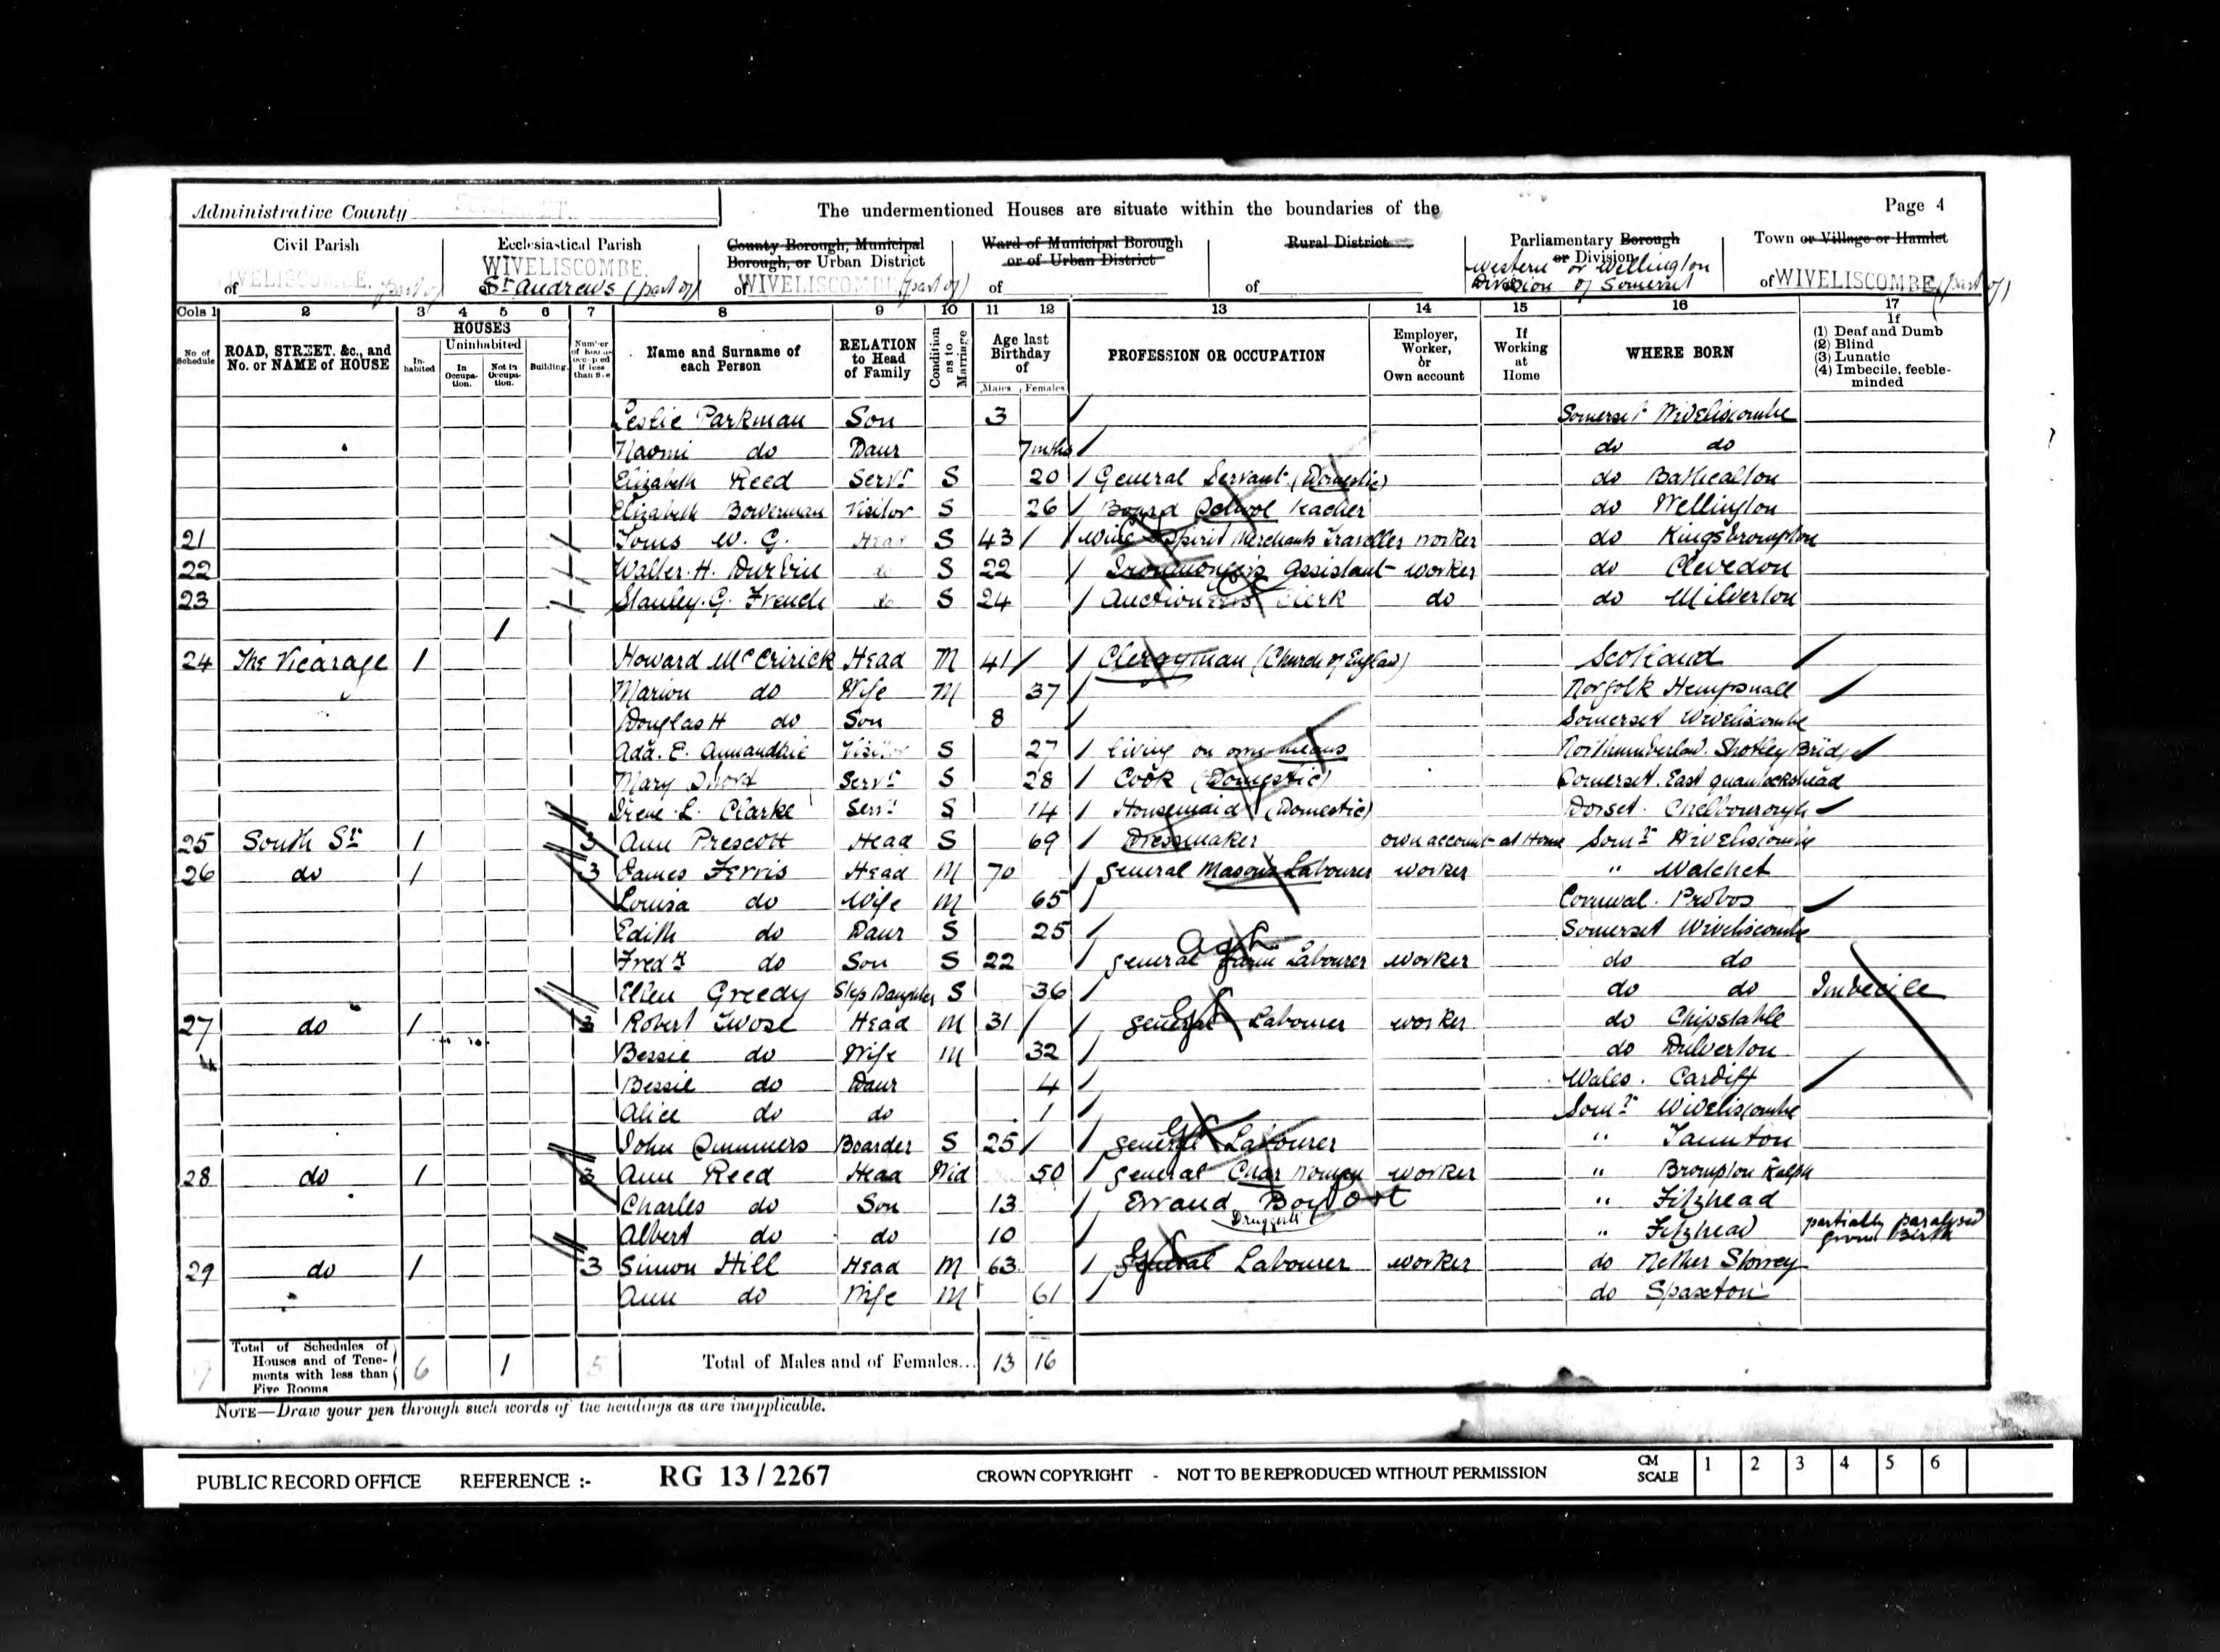 Administrative County SOMERSET. The undermentioned Houses are situate within the boundaries of the Page 4
Civil Parish Ecclesiastical Parish County Borough, Municipal Borough, or Urban District Ward of Municipal Borough or of Urban District Rural District Parliamentary Borough or Division Town or Village or Hamlet
of WIVELISCOMBE. (part of) WIVELISCOMBE. St Andrews (part of) of WIVELISCOMBE (part of) of of Western or Wellington Division of Somerset of WIVELISCOMBE (part of)
Cols 1 2 3 4 5 6 7 8 9 10 11 12 13 14 15 16 17
No of Schedule ROAD, STREET, &c., and No. or NAME of HOUSE HOUSES Inhabited Uninhabited In Occupation. Not in Occupation. Building. Number of rooms occupied if less than five Name and Surname of each Person RELATION to Head of Family Condition as to Marriage Age last Birthday of Males Females PROFESSION OR OCCUPATION Employer, Worker, or Own account If Working at Home WHERE BORN If (1) Deaf and Dumb (2) Blind (3) Lunatic (4) Imbecile, feeble-minded
Leslie Parkman Son 3 Somerset Wiveliscombe
Naomi do Daur 7 mths do do
Elizabeth Reed Servt S 20 General Servant (Domestic) do Bathealton
Elizabeth Bowerman Visitor S 26 Board School teacher do Wellington
21 W. G. Head S 43 Wine & Spirit Merchants Traveller worker do Kingsbrompton
22 Walter. H. Durbin do S 22 Ironmongers assistant worker do Clevedon
23 Stanley. G. French do S 24 Auctioneers Clerk do do Milverton
1
24 The Vicarage 1 Howard McCririck Head M 41 Clergyman (Church of England) Scotland
Marion do Wife M 37 Norfolk Hempnall
Douglas H do Son 8 Somerset Wiveliscombe
Ada. E. Annandale Visitor S 27 living on own means Northumberland. Shotley Bridge
Mary Servt S 28 Cook (Domestic) Somerset. East quantockshead
Irene. L. Clarke Servt S 14 Housemaid (Domestic) Dorset.
25 South St 1 3 Ann Prescott Head S 69 Dressmaker own account at Home Somt Wiveliscombe
26 do 1 3 James Ferris Head M 70 general Masons Labourer worker " Watchet
Louisa do Wife M 65 Cornwal. Probos
Edith do Daur S 25 Somerset Wiveliscombe
Fredk do Son S 22 general farm Labourer Ag L worker do do
Ellen Greedy Step Daughter S 36 do do Imbecile
27 do 1 3 Robert Twose Head M 31 general Labourer G L worker do Chipstable
Bessie do Wife M 32 do Dulverton
Bessie do Daur 4 Wales. Cardiff
Alice do do 1 Somt Wiveliscombe
John Summers Boarder S 25 general Labourer G L " Taunton
28 do 1 3 Ann Reed Head Wid 50 general Char woman worker " Brompton Ralph
Charles do Son 13 Errand Boy Druggists " Fitzhead
Albert do do 10 " Fitzhead partially paralysed from Birth
29 do 1 3 Simon Hill Head M 63 general Labourer worker do Nether Stowey
Ann do Wife M 61 do Spaxton
Total of Schedules of Houses and of Tenements with less than Five Rooms 6 1 5 Total of Males and of Females... 13 16
NOTE—Draw your pen through such words of the headings as are inapplicable.
PUBLIC RECORD OFFICE REFERENCE :- RG 13 / 2267 CROWN COPYRIGHT - NOT TO BE REPRODUCED WITHOUT PERMISSION CM SCALE 1 2 3 4 5 6